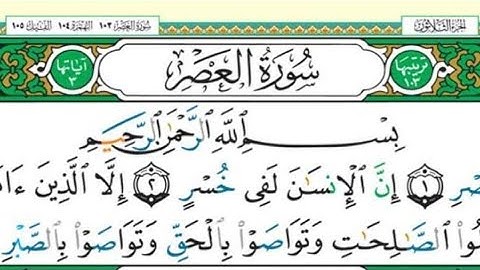 الجزء الثلاثون سورة العصر ١٠٣ الهمزة ١٠٤ الفيل ١٠٥
ترتيبها ١٠٣ سُورَةُ العَصْرِ آياتها ٣
بِسْمِ ٱللَّهِ ٱلرَّحْمَٰنِ ٱلرَّحِيمِ
صْرِ ١ إِنَّ ٱلْإِنسَٰنَ لَفِى خُسْرٍ ٢ إِلَّا ٱلَّذِينَ ءَامَ
لُوا۟ ٱلصَّٰلِحَٰتِ وَتَوَاصَوْا۟ بِٱلْحَقِّ وَتَوَاصَوْا۟ بِٱلصَّبْرِ